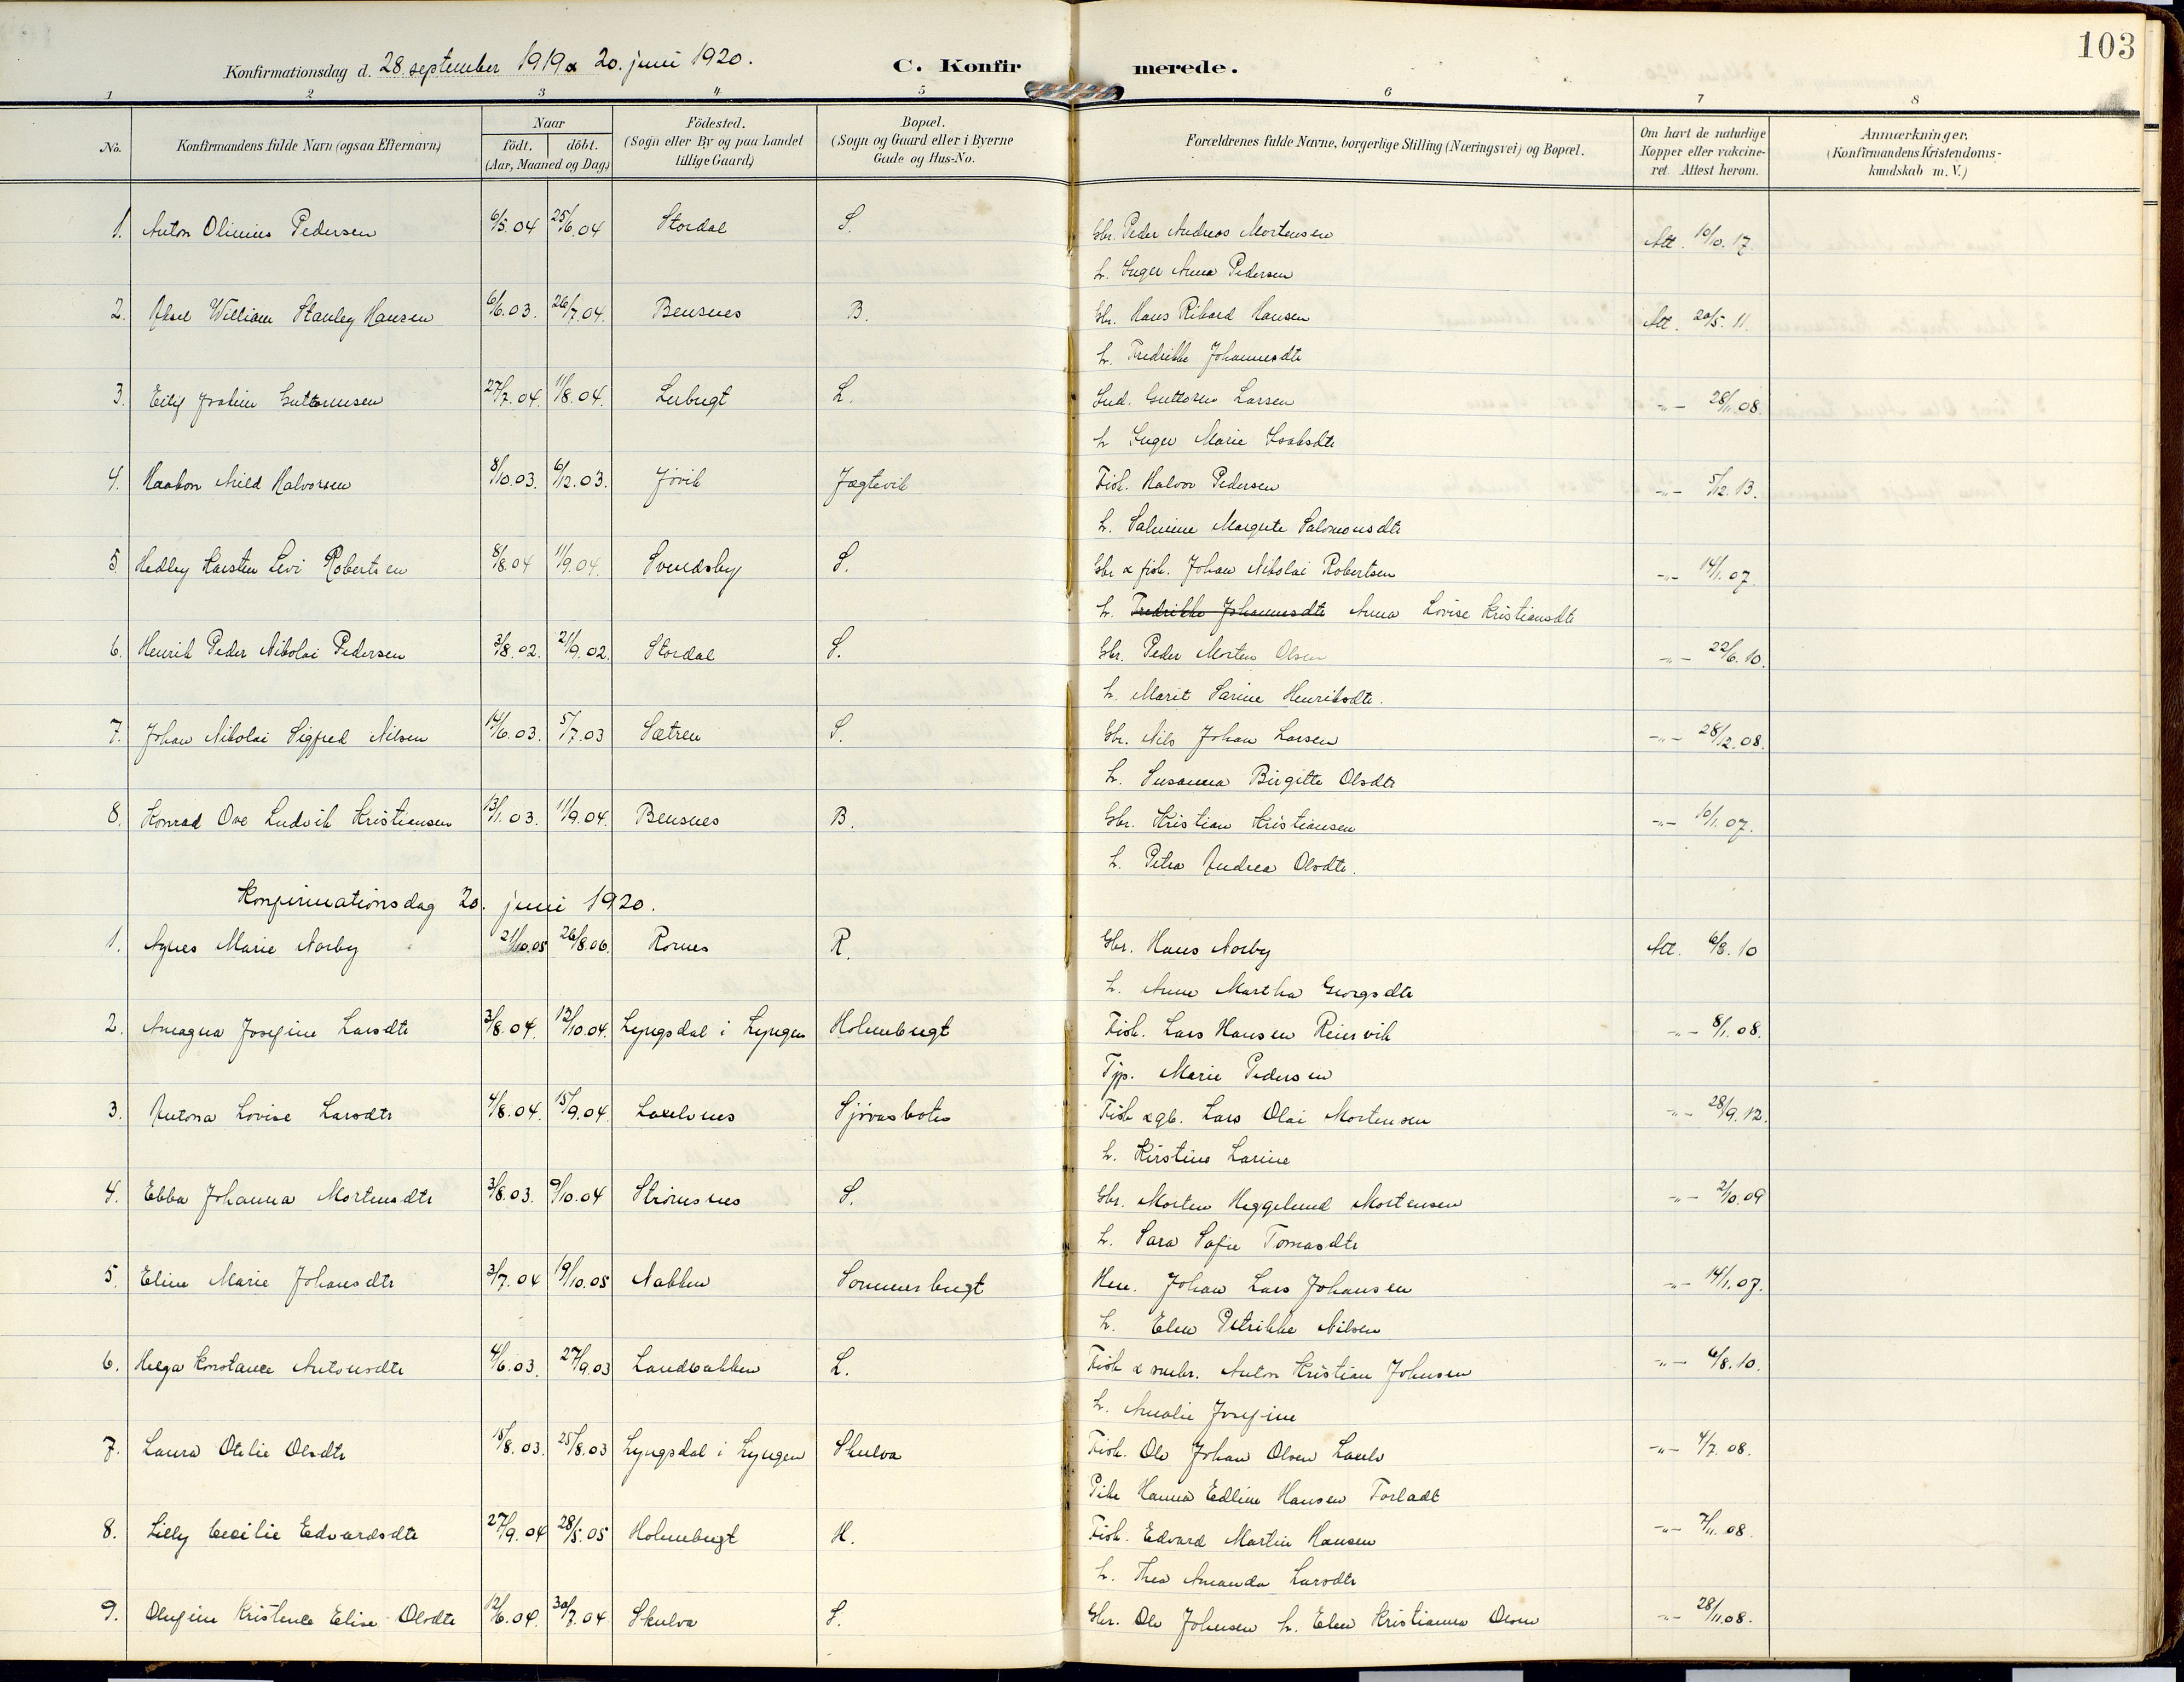 103
Konfirmationsdag d. 28. september 1919 & 20. juni 1920.
C. Konfirmerede.
1 2 3 4 5 6 7 8
No. Konfirmandens fulde Navn (ogsaa Efternavn) Naar födt. döbt. (Aar, Maaned og Dag.) Födested. (Sogn eller By og paa Landet tillige Gaard) Bopæl. (Sogn og Gaard eller i Byerne Gade og Hus-No. Forældrenes fulde Navne, borgerlige Stilling (Næringsvei) og Bopæl. Om havt de naturlige Kopper eller vakcineret Attest herom. Anmærkninger. (Konfirmandens Kristendomskundskab m. V.)
1. Anton Olinius Pedersen 6/5.04 25/6.04 Stordal S. Gbr. Peder Andreas Mortensen Att. 10/10.17.
h. Inger Anna Pedersen
2. Aksel William Stanley Hansen 6/6.03. 26/7.04. Bensnes B. Gbr. Hans Rikard Hansen Att. 20/5.11.
h. Fredrikke Johannesdtr
3. Eilif Joakim Guttormsen 27/7.04. 11/8.04. Lerbugt L. Ind. Guttorm Larsen -"- 28/11.08.
h Inger Marie Isaksdtr
4. Haakon Arild Halvorsen 8/10.03. 6/12.03. Jövik Jægtevik Fisk. Halvor Pedersen -"- 5/12.13.
h. Salmine Margrete Salomonsdtr
5. Hedley Karsten Levi Robertsen 8/8.04 11/9.04. Svendsby S. Gbr & fisk. Johan Nikolai Robertsen -"- 14/1.07.
h. Fredrikke Johannesdtr Anna Lovise Kristiansdtr
6. Henrik Peder Nikolai Pedersen 3/8.02. 21/9.02. Stordal S. Gbr. Peder Morten Olsen -"- 22/6.10.
h. Marit Sarine Henriksdtr.
7. Johan Nikolai Sigfred Nilsen 14/6.03. 5/7.03 Sætren S. Gbr. Nils Johan Larsen -"- 28/12.08.
h. Susanna Birgitte Olsdtr
8. Konrad Ove Ludvik Kristiansen 13/1.03. 11/9.04. Bensnes B. Gbr. Kristian Kristiansen -"- 10/1.07.
h. Petra Andrea Olsdtr.
Konfirmationsdag 20. juni 1920.
1. Agnes Marie Norby 21/10.05 26/8.06. Rornes R. Gbr. Hans Norby Att. 6/8.10
h. Anne Martha Georgsdtr
2. Amagna Josefine Larsdtr 3/8.04. 12/10.04. Lyngsdal i Lyngen Holmbugt Fisk. Lars Hansen Reiervik -"- 8/1.08.
Tjp. Marie Pedersen
3. Antona Lovise Larsdtr 4/8.04. 15/9.04. Lakselvnes Sjövasbotn Fisk & gb. Lars Olai Mortensen -"- 28/9.12.
h. Kirstine Larine
4. Ebba Johanna Mortensdtr 3/8.03. 9/10.04 Strömsnes S. Gbr. Morten Heggelund Mortensen -"- 2/10.09
h. Sara Sofie Tomasdtr
5. Eline Marie Johansdtr 3/7.04 19/10.05 Nakken Sommerbugt Johan Lars Johansen -"- 14/1.07.
h. Elen Petrikke Nilsen
6. Helga Konstance Antonsdtr 4/6.03. 27/9.03 L. Fisk & Anton Kristian Johnsen -"- 6/8.10.
h. Amalie Josefine
7. Laura Otelie Olsdtr 15/8.03. 25/8.03 Lyngsdal i Lyngen Skulva Fisk. Ole Johan Olsen Lakselv -"- 4/7.08.
Pike Hanna Edline Hansen Forladt
8. Lilly Cecilie Edvardsdtr 27/9.04 28/5.05 Holmbugt H. Fisk. Edvard Martin Hansen -"- 7/11.08.
h. Thea Amanda Larsdtr
9. Olufine Kristence Elise Olsdtr 12/6.04. 30/7.04 Skulva S. Gbr. Ole Johnsen h. Elen Kristianna Olsen -"- 28/11.08.